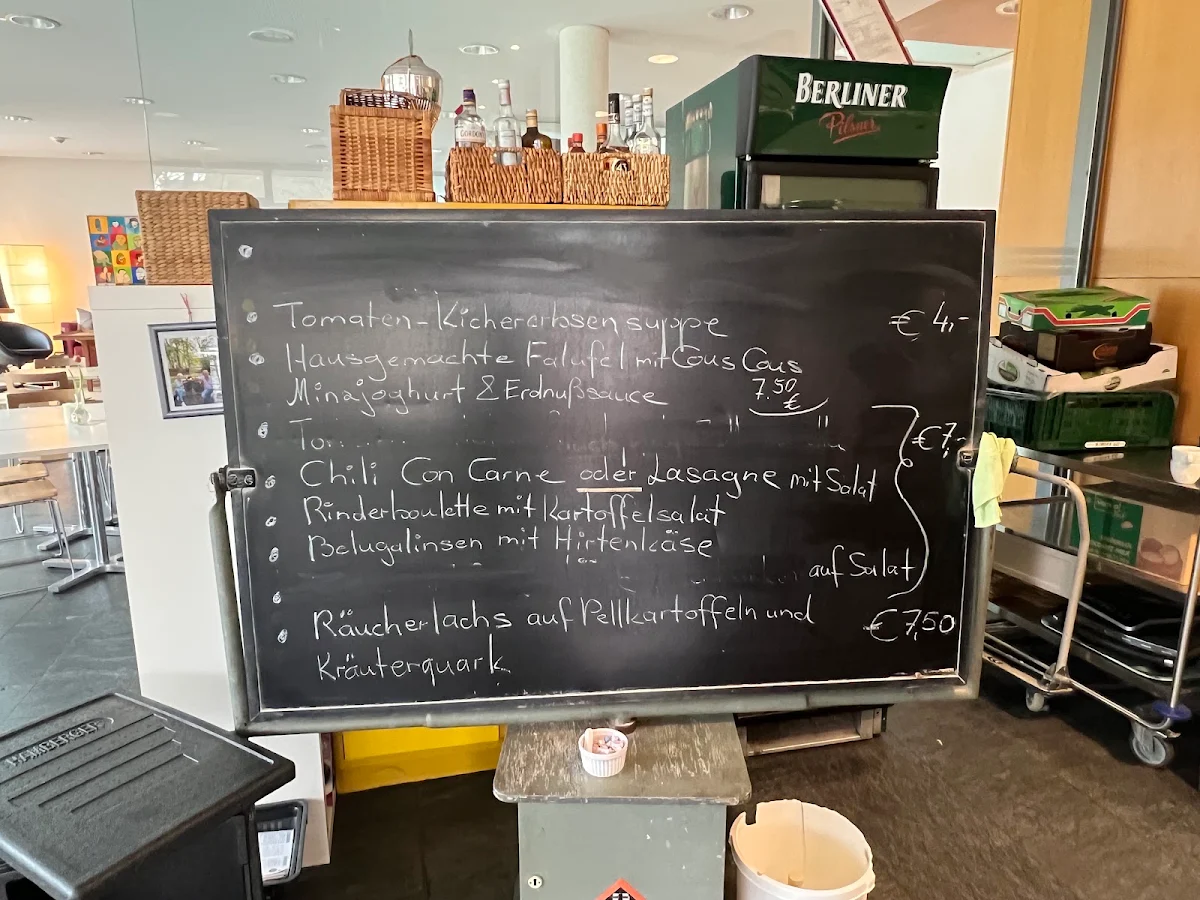 BERLINER
Pilsner
GORDON'S
Tomaten-Kichererbsensuppe € 4,-
Hausgemachte Falafel mit Cous Cous
Minzjoghurt & Erdnußsauce 7.50 €
To
€7,-
Chili Con Carne oder Lasagne mit Salat
Rinderboulette mit Kartoffelsalat
Belugalinsen mit Hirtenkäse
auf Salat
Räucherlachs auf Pellkartoffeln und €7,50
Kräuterquark